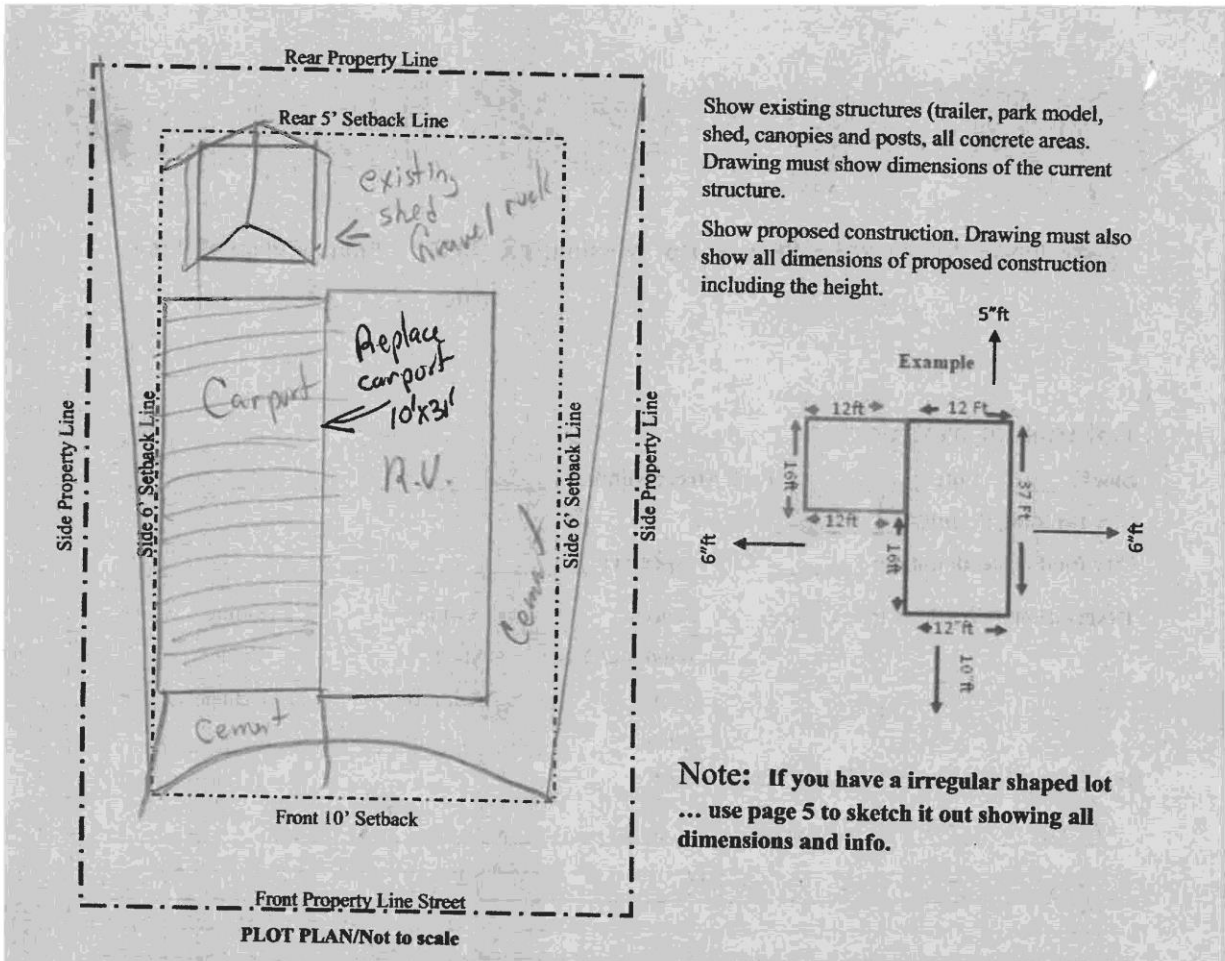 Rear Property Line
Rear 5' Setback Line
existing
shed
Gravel
Carport
Replace
carport
10'x31'
R.V.
Cement
Cement
Side Property Line
Side 6' Setback Line
Side 6' Setback Line
Side Property Line
Front 10' Setback
Front Property Line Street
PLOT PLAN/Not to scale
Show existing structures (trailer, park model,
shed, canopies and posts, all concrete areas.
Drawing must show dimensions of the current
structure.
Show proposed construction. Drawing must also
show all dimensions of proposed construction
including the height.
5"ft
Example
12ft
12 Ft
16ft
37 Ft
12ft
16ft
6"ft
6"ft
12"ft
10"ft
Note: If you have a irregular shaped lot
... use page 5 to sketch it out showing all
dimensions and info.